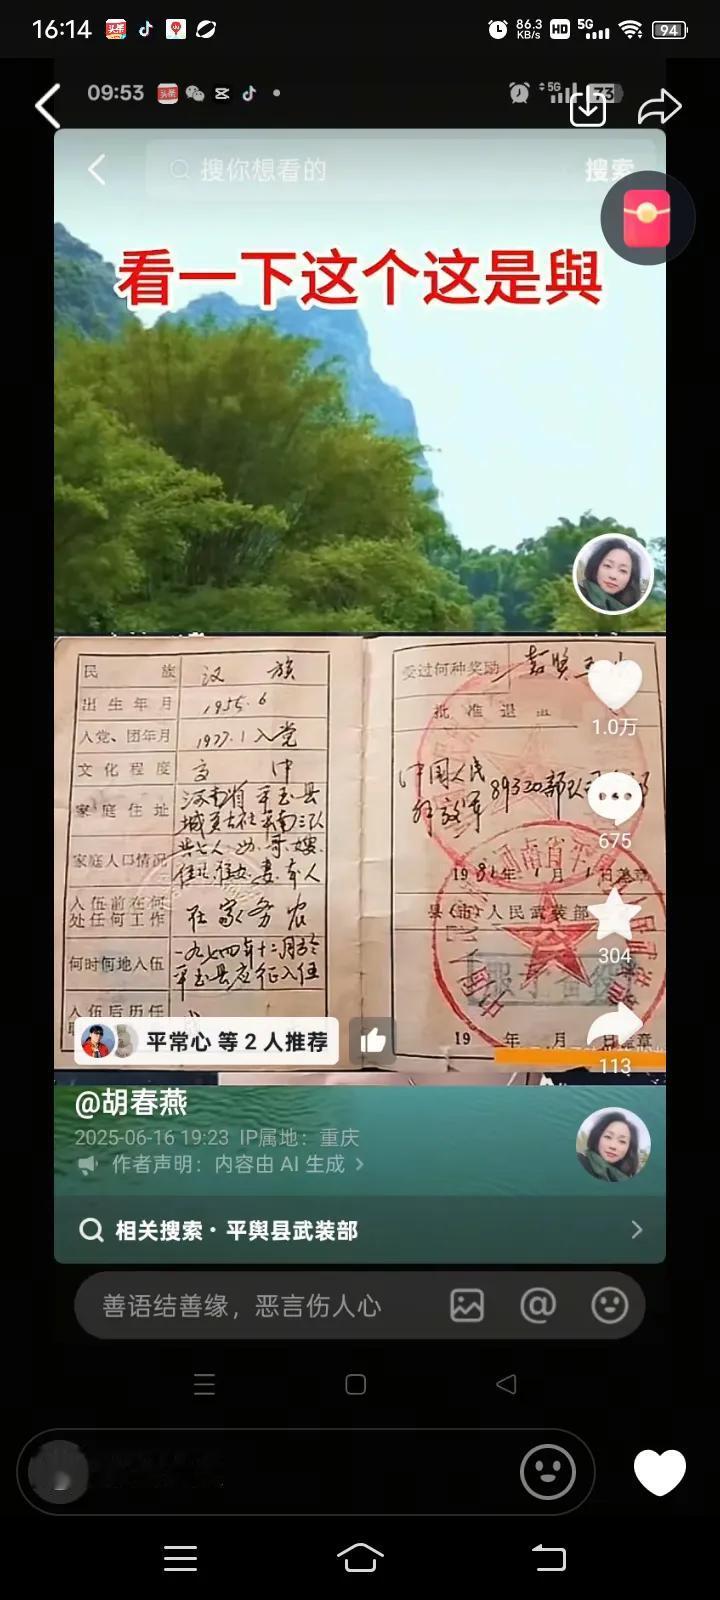 16:14
86.3
KB/s
HD
5G
94
09:53
5G
33
搜你想看的
搜索
看一下这个这是與
民族
汉族
出生年月
1955.6
入党、团年月
1977.1入党
文化程度
高中
家庭住址
河南省平玉县
家庭人口情况
共七人
入伍前在何
处任何工作
在家务农
何时何地入伍
一九七四年十二月于
平玉县应征入伍
入伍后历任
受过何种奖励
嘉奖
批准退
中国人民
解放军89320部队司令部
1981年1月1日盖章
县(市)人民武装部
19 年 月 日盖章
1.0万
675
304
113
平常心 等 2 人推荐
@胡春燕
2025-06-16 19:23 IP属地：重庆
作者声明：内容由 AI 生成
相关搜索·平舆县武装部
善语结善缘，恶言伤人心